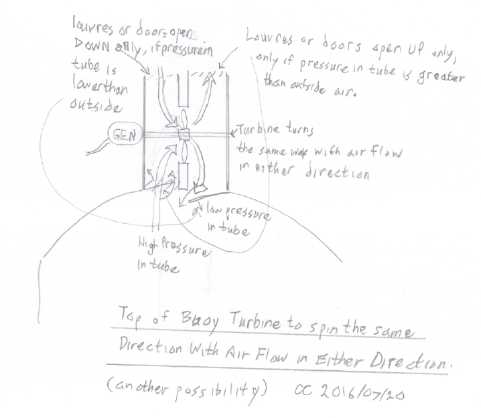 louvres or doors open
DOWN only, if pressure in
tube is
lower than
outside
Louvres or doors open UP only,
only if pressure in tube is greater
than outside air.
GEN
Turbine turns
the same way with air flow
in either direction
low pressure
in tube
High Pressure
in tube
Top of Buoy Turbine to spin the same
Direction With Air Flow in Either Direction.
(another possibility) CC 2016/07/20